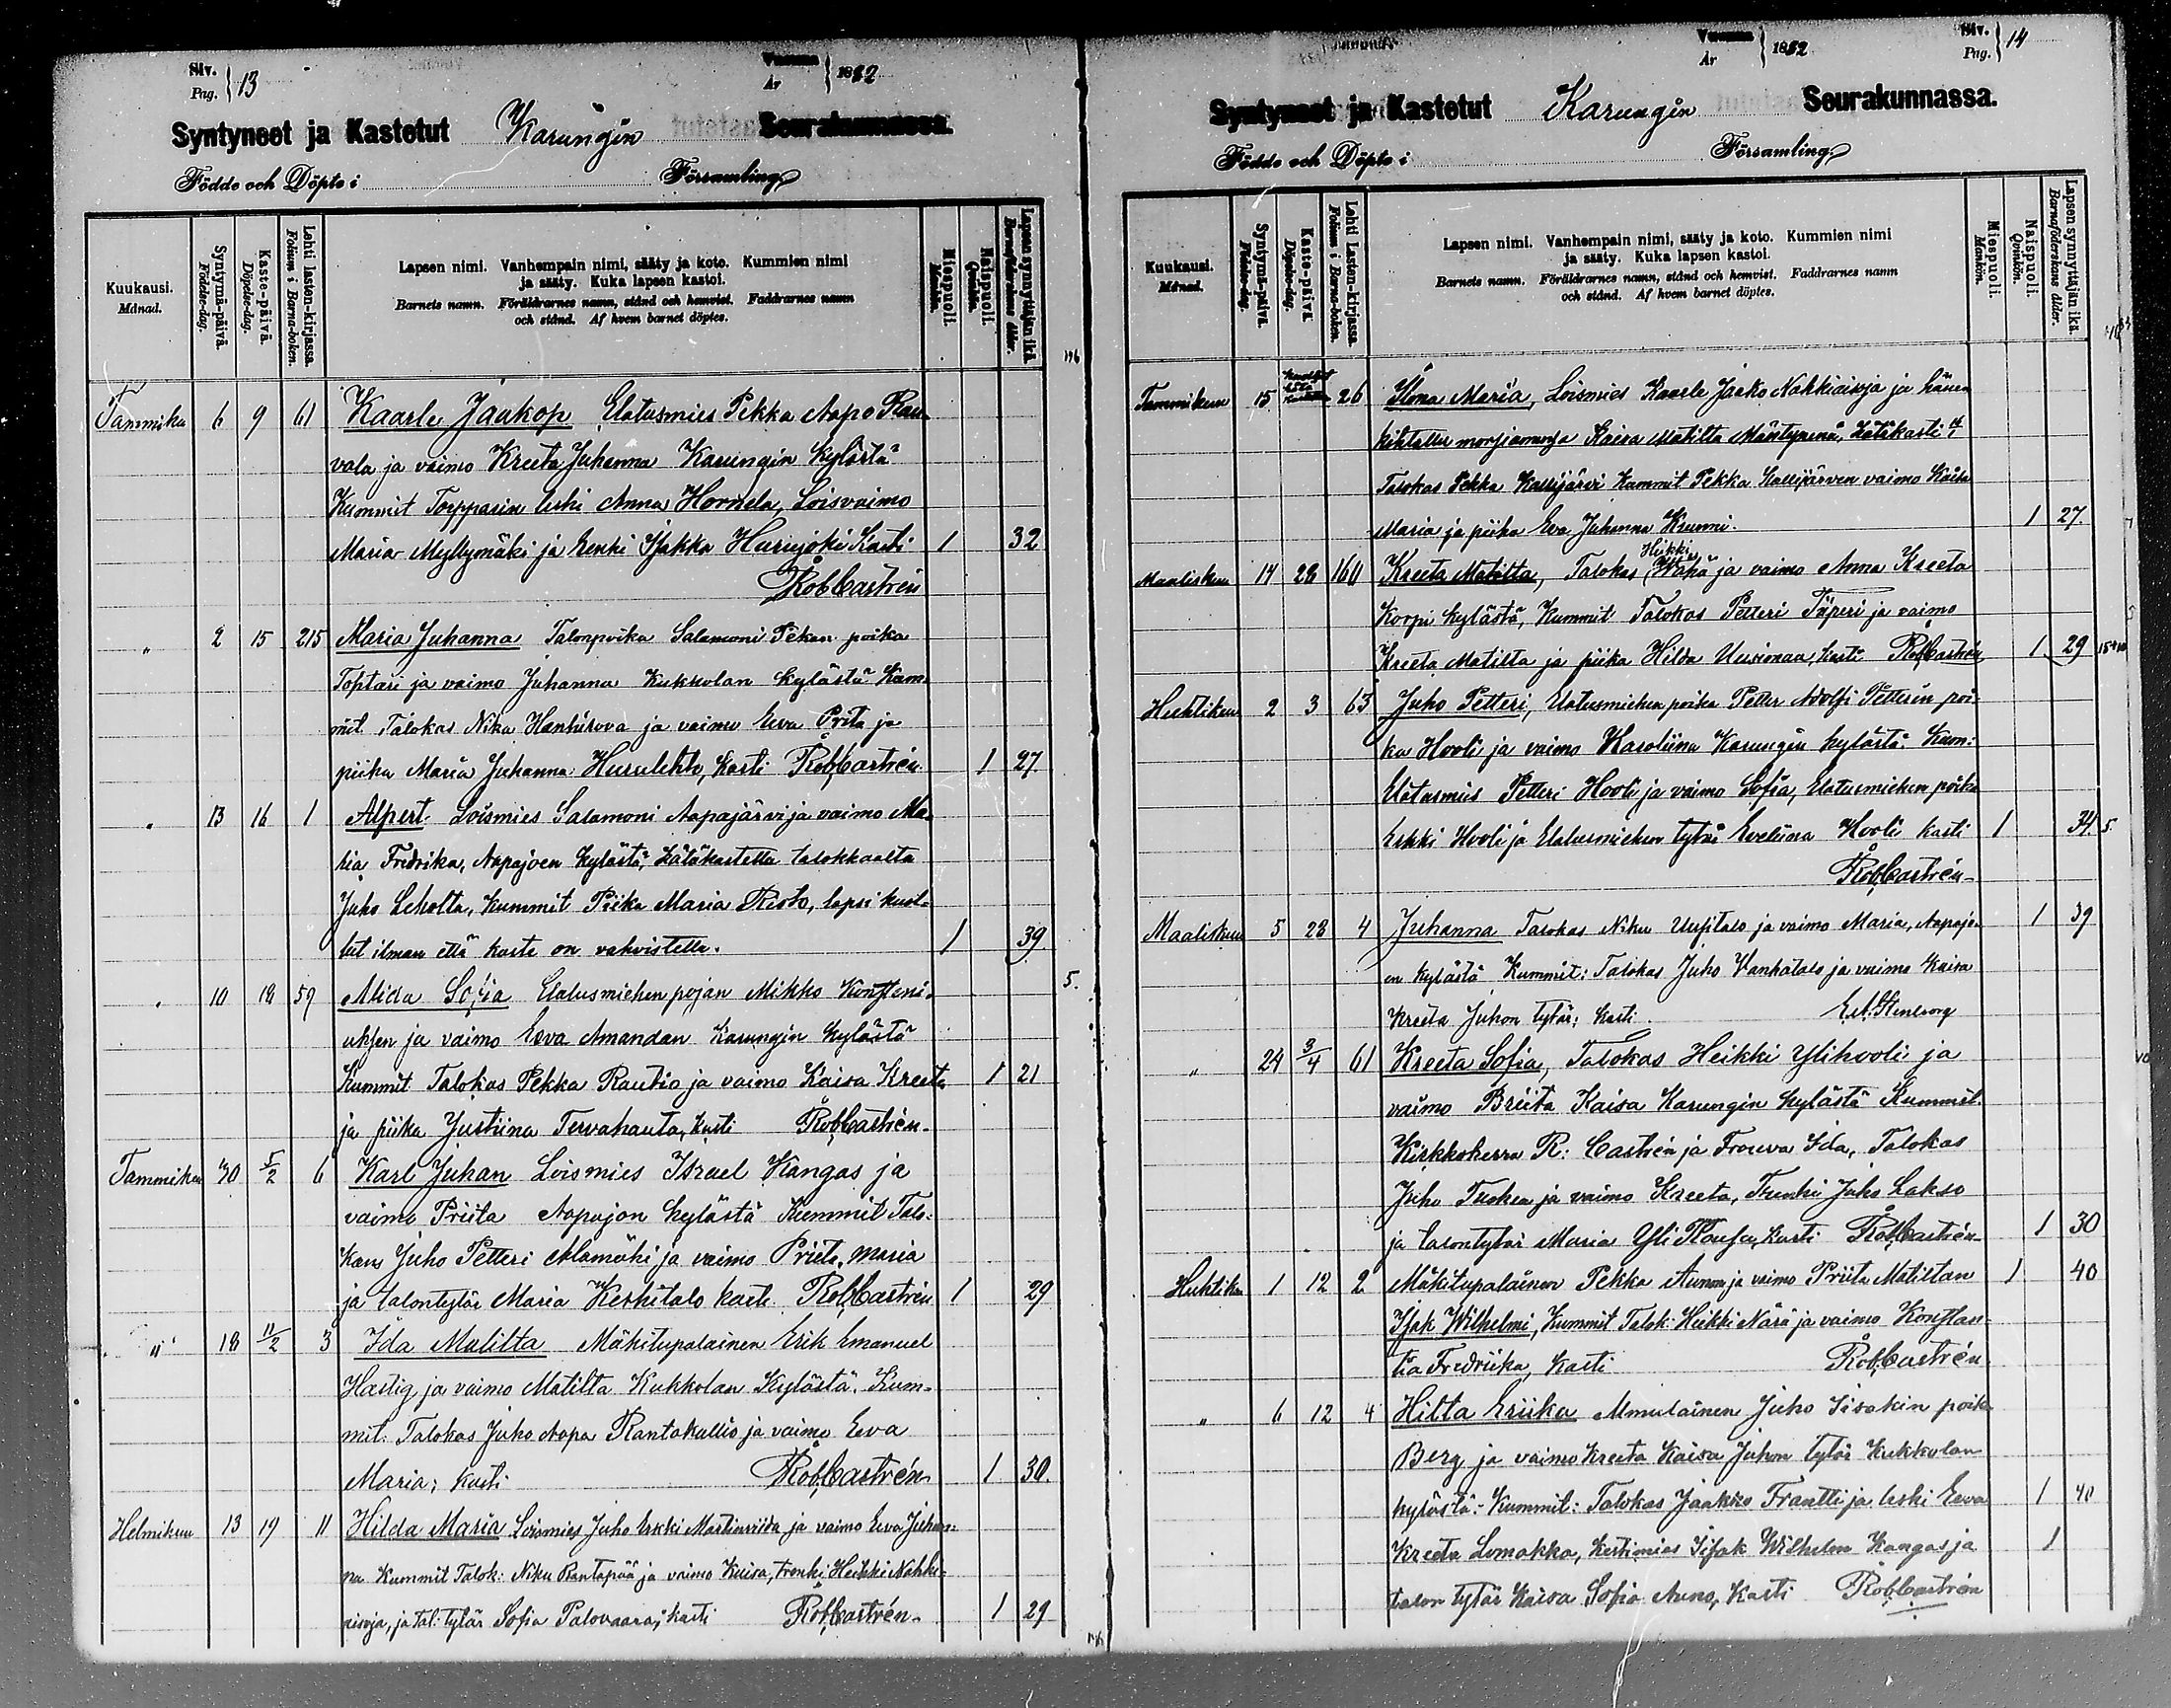 Siv.
Pag. } 13
Vuonna
År } 1882
Syntyneet ja Kastetut Karungin Seurakunnassa.
Födde och Döpte i Församling
Kuukausi.
Månad.
Syntymä-päivä.
Födelse-dag.
Kaste-päivä.
Döpelse-dag.
Lehti lasten-kirjassa.
Folium i Barna-boken.
Lapsen nimi. Vanhempain nimi, sääty ja koto. Kummien nimi
ja sääty. Kuka lapsen kastoi.
Barnets namn. Föräldrarnes namn, stånd och hemvist. Faddrarnes namn
och stånd. Af hvem barnet döptes.
Miespuoli.
Mankön.
Naispuoli.
Qvinkön.
Lapsen synnyttäjän ikä.
Barnaföderskans ålder.
Tammiku 6 9 61 Kaarle Jaakop Elatusmies Pekka Aapo Rau
vala ja vaimo Kreeta Juhanna Karungin Kylästä
Kummit Torpparin leski Anna Hornela, Loisvaimo
Maria Myllymäki ja Renki Isakka Harujoki Kasti 1 32
Rob Castrén
" 2 15 215 Maria Juhanna Talonpoika Salamoni Pekan poika
Toptari ja vaimo Juhanna Kukkolan kylästä Kum-
mit Talokas Nika Hanhirova ja vaimo Eeva Prita ja
piika Maria Juhanna Husulehto, Kasti Rob Castrén 1 27
" 13 16 1 Alpert Loismies Salamoni Aapajärvi ja vaimo Ma-
ria Fredrika, Aapajoen kylästä, hätäkastettu talokkaalta
Juho Leholta, Kummit Piika Maria Risto, lapsi kuol-
lut ilman että kaste on vahvistettu. 1 39
" 10 18 59 Alida Sofia Elatusmiehen pojan Mikko Konstteni-
uksen ja vaimo Eeva Amandan Karungin kylästä
Kummit Talokas Pekka Rautio ja vaimo Kaisa Kreeta 1 21
ja piika Justiina Tervahauta, Kasti Rob Castrén
Tammiku 30 5/2 6 Karl Juhan Loismies Israel Kangas ja
vaimo Priita Aapajon kylästä Kummit Talo-
kas Juho Petteri Alamäki ja vaimo Priita Maria
ja talontytär Maria Keskitalo kasti Rob Castrén 1 29
" 18 11/2 3 Ida Matilta Mäkitupalainen Erik Emanuel
Hastig ja vaimo Matilta Kukkolan Kylästä. Kum-
mit. Talokas Juho Aapa Rantakallio ja vaimo Eeva
Maria; kasti Rob Castrén 1 30.
Helmikuu 13 19 11 Hilda Maria Loismies Juho Erkki Martinviida ja vaimo Eeva Juhan-
na Kummit Talok: Niku Rantapää ja vaimo Kaisa, trenki Heikki Nahki-
aisoja, ja tal: tytär Sofia Palovaara; kasti Rob Castrén 1 29
Siv.
Pag. } 14
Vuonna
År } 1882
Syntyneet ja Kastetut Karungin Seurakunnassa.
Födde och Döpte i Församling
Kuukausi.
Månad.
Syntymä-päivä.
Födelse-dag.
Kaste-päivä.
Döpelse-dag.
Lehti Lasten-kirjassa.
Folium i Barna-boken.
Lapsen nimi. Vanhempain nimi, sääty ja koto. Kummien nimi
ja sääty. Kuka lapsen kastoi.
Barnets namn. Föräldrarnes namn, stånd och hemvist. Faddrarnes namn
och stånd. Af hvem barnet döptes.
Miespuoli.
Mankön.
Naispuoli.
Qvinkön.
Lapsen synnyttäjän ikä.
Barnaföderskans ålder.
Tammikuu 15 26 Ilona Maria, Loismies Kaarle Jaako Nahkiaisoja ja hänen
kihlattu morsiamensa Kaisa Matilta Mäntypenä, hätäkasti
Talokas Pekka Kallijärvi Kummit Pekka Kallijärven vaimo
Maria ja piika Eva Juhanna Krunni. 1 27.
Maaliskuu 14 28 160 Kreeta Matilta, Talokas Heikki ja vaimo Anna Kreeta
Korpi kylästä, Kummit Talokas Petteri Täperi ja vaimo
Kreeta Matilta ja piika Hilda Uusimaa, kasti Rob Castrén 1 29
Huhtikuu 2 3 63 Juho Petteri, Elatusmiehen poika Petter Adolfi Petterin poi-
ka Hooli ja vaimo Karoliina Karungin kylästä. Kum:
Elatusmies Petteri Hooli ja vaimo Sofia, Elatusmiehen poika
Erkki Hooli ja Elatusmiehen tytär Eveliina Hooli kasti 1 34
Rob Castrén
Maaliskuu 5 28 4 Juhanna Talokas Niku Uusitalo ja vaimo Maria, Aapajo- 1 39
en kylästä Kummit: Talokas Juho Vanhatalo ja vaimo Kaisa
Kreeta Juhon tytär; Kasti
" 24 3/4 61 Kreeta Sofia, Talokas Heikki Ylihooli ja
vaimo Briita Kaisa Karungin kylästä Kummit.
Kirkkoherra R: Castrén ja Frouva Ida, Talokas
Juho Tuohea ja vaimo Kreeta, Trenki Juho Lakso
ja talontytär Maria Yli kasti Rob Castrén 1 30
Huhtiku 1 12 2 Mäkitupalainen Pekka Aunon ja vaimo Priita Matiltan 1 40
Isak Wilhelmi, Kummit Talok Heikki Närä ja vaimo Konstan-
tia Fredriika, Kasti Rob Castrén
" 6 12 4 Hilta Eriika Juho Iisakin poika
Berg ja vaimo Kreeta Kaisa Juhon tytär Kukkolan
kylästä. Kummit: Talokas Jaakko Frantti ja leski Eeva 1 40
Kreeta Lomakka, Isak Wilhelm Kangas ja 1
talon tytär Kaisa Sofia Auno, Kasti Rob Castrén